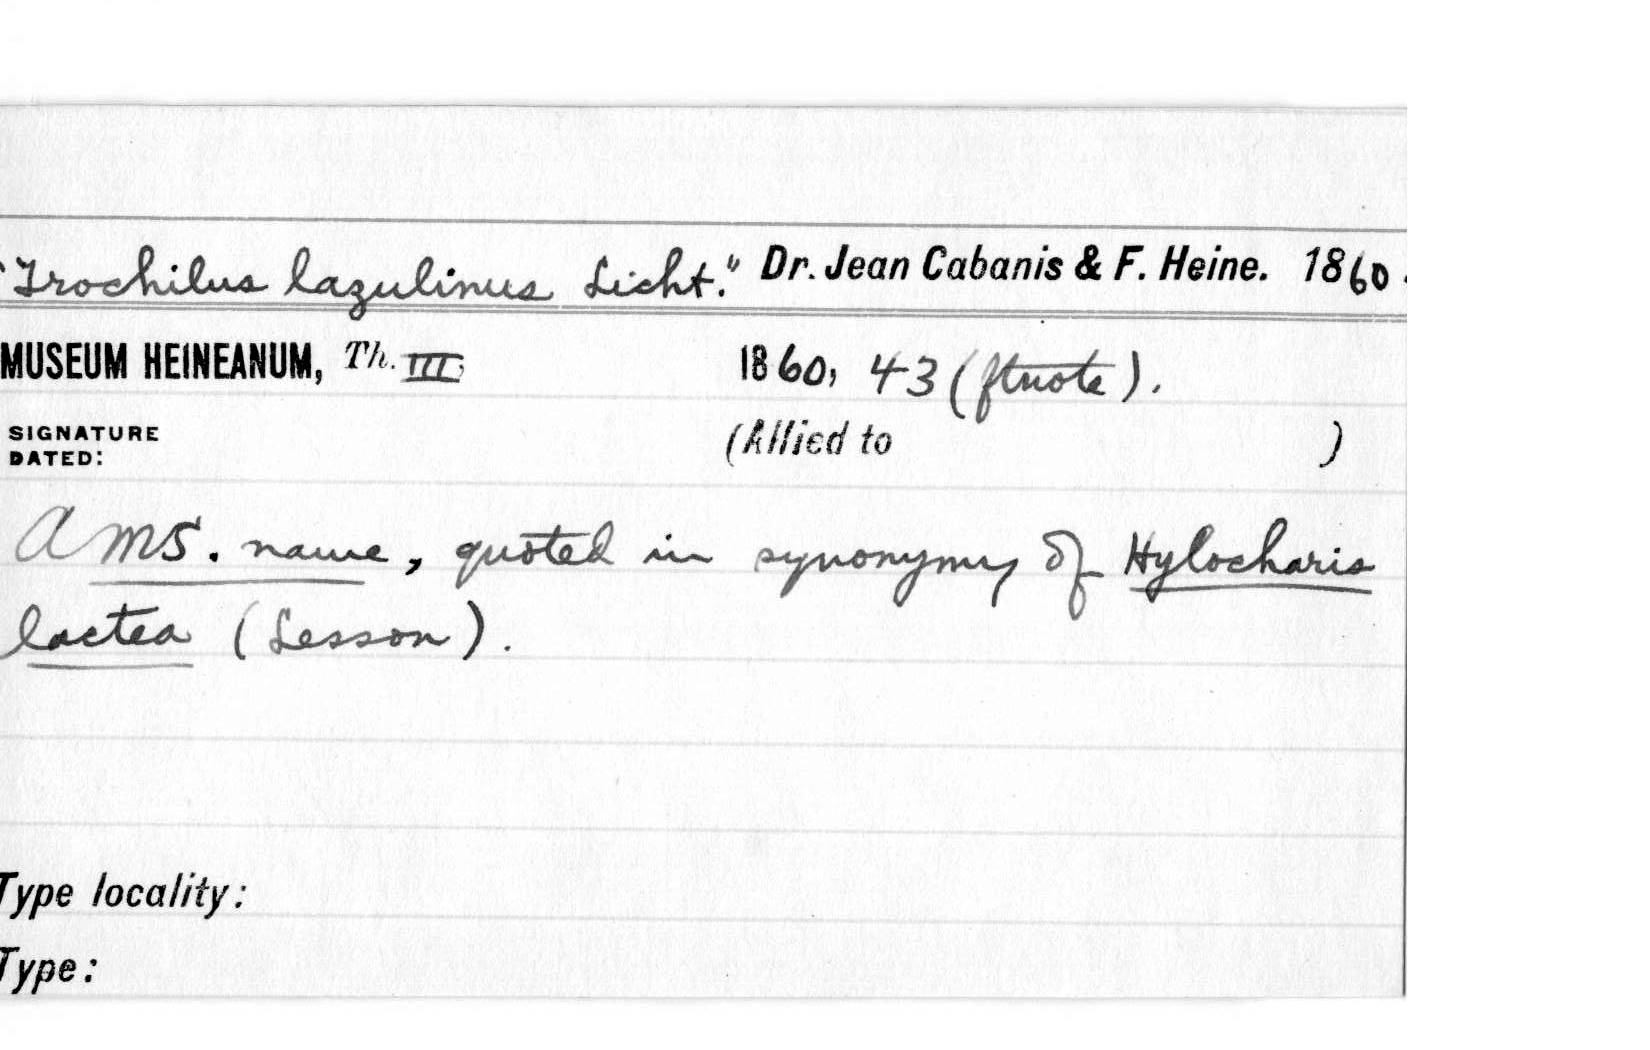 "Trochilus lazulinus Licht." Dr. Jean Cabanis & F. Heine. 1860.
MUSEUM HEINEANUM, Th. III, 1860, 43 (ftnote).
SIGNATURE DATED: (Allied to )
A MS. name, quoted in synonymy of Hylocharis
lactea (Lesson).
Type locality:
Type: